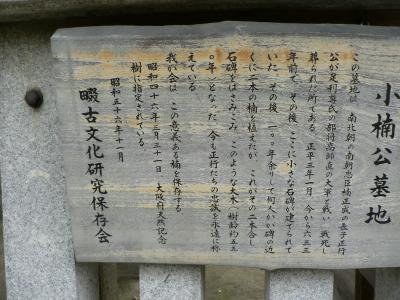 小楠公墓地
この墓地は、南北朝の南朝忠臣楠正成の長子正行
公が足利尊氏の部将高師直の大軍と戦い、戦死し
葬られた所である。正平三年一月、今から六三三
年前で、その後、ここに小さな石碑が建てられて
いた。その後、一〇〇年余りして何人かが碑の近
くに二本の楠を植えたが、これがその二本合し
石碑をはさみこみ、このような大木、樹齢約五五
〇年となった。今も正行たちの忠誠を永遠に称
えている
我が会は、この意義ある楠を保存する
昭和四十六年三月三十一日 大阪府天然記念
樹に指定されている。
昭和五十六年十一月
畷古文化研究保存会